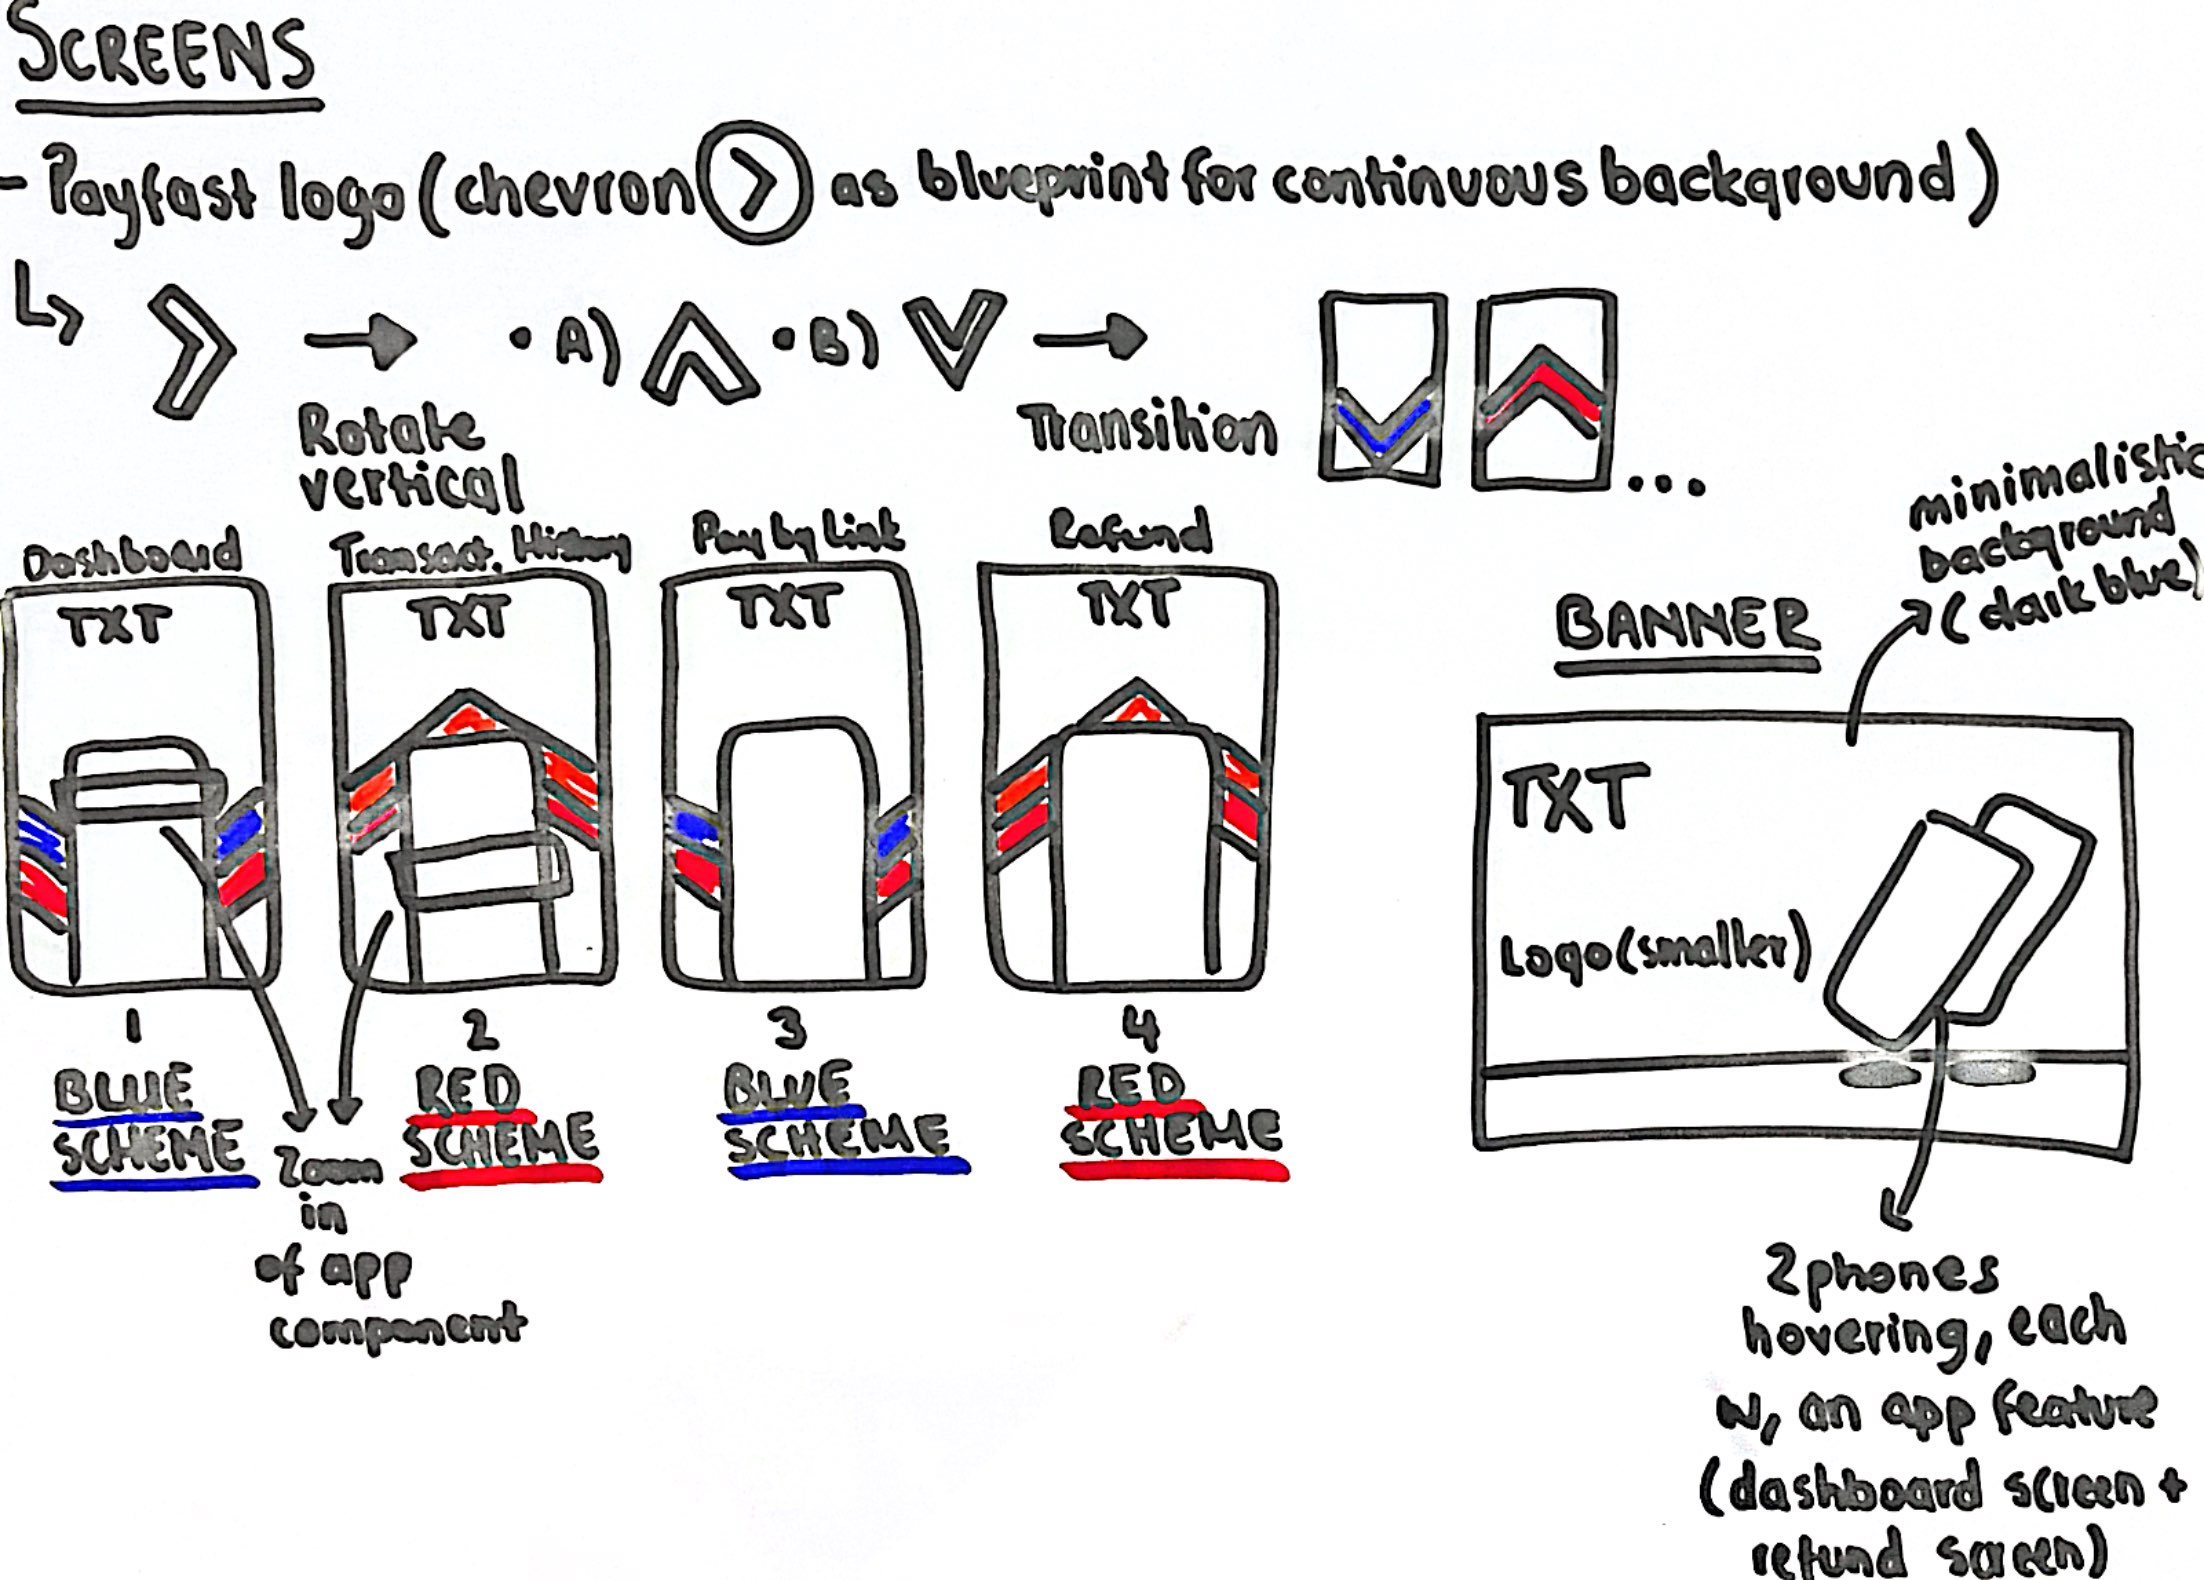 SCREENS
- Payfast logo (chevron > as blueprint for continuous background)
• A) • B)
Rotate
vertical
Transition
...
Dashboard
Transact. History
Pay by Link
Refund
TXT
TXT
TXT
TXT
1
2
3
4
BLUE
SCHEME
RED
SCHEME
BLUE
SCHEME
RED
SCHEME
Zoom
in
of app
component
minimalistic
background
(dark blue)
BANNER
TXT
Logo (smaller)
2 phones
hovering, each
w, an app feature
(dashboard screen +
refund screen)